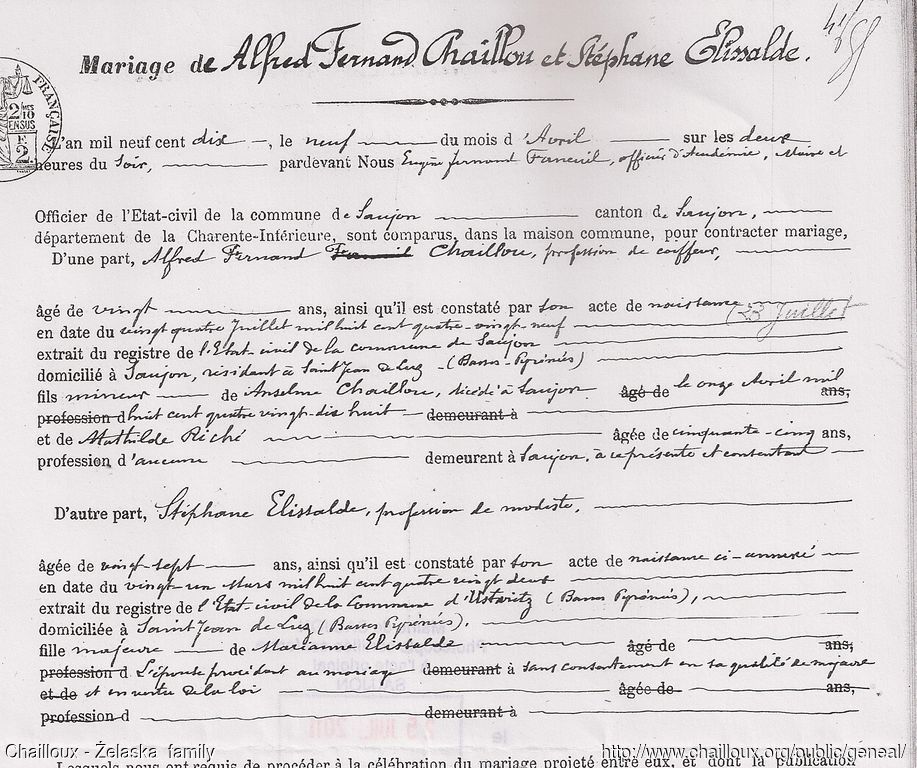 Mariage de Alfred Fernand Chaillou et Stéphane Elissalde.
FRANÇAISE
2/10
EN SUS
2.
L'an mil neuf cent dix, le neuf du mois d'Avril sur les deux
heures du Soir, pardevant Nous Eugène Fernand Faneuil, officier d'Académie, Maire et
Officier de l'Etat-civil de la commune de Saujon canton de Saujon,
département de la Charente-Inférieure, sont comparus, dans la maison commune, pour contracter mariage,
D'une part, Alfred Fernand Chaillou, profession de coiffeur,
âgé de vingt ans, ainsi qu'il est constaté par son acte de naissance
(23 Juillet
en date du vingt quatre Juillet mil huit cent quatre-vingt-neuf
extrait du registre de l'Etat-civil de la commune de Saujon
domicilié à Saujon, résidant à Saint Jean de Luz - (Basses-Pyrénées)
fils mineur de Anselme Chaillou, décédé à Saujon âgé de le onze Avril mil ans,
profession d huit cent quatre vingt-dix huit demeurant à
et de Mathilde Riché âgée de cinquante-cinq ans,
profession d'aucune demeurant à Saujon, à représente et consentant
D'autre part, Stéphane Elissalde, profession de modiste,
âgée de vingt-sept ans, ainsi qu'il est constaté par son acte de naissance ci-annexé
en date du vingt-un Mars mil huit cent quatre vingt deux
extrait du registre de l'Etat-civil de la Commune d'Ustaritz (Basses Pyrénées),
domiciliée à Saint Jean de Luz (Basses Pyrénées).
fille majeure de Marianne Elissalde âgé de ans,
profession d L'épouse procédant au mariage demeurant à sans consentement en sa qualité de majeure
et de et en vertu de la loi âgée de ans,
profession d demeurant à
Chailloux - Želaska family http://www.chailloux.org/public/geneal/
Lesquels nous ont requis de procéder à la célébration du mariage projeté entre eux, et dont la publication